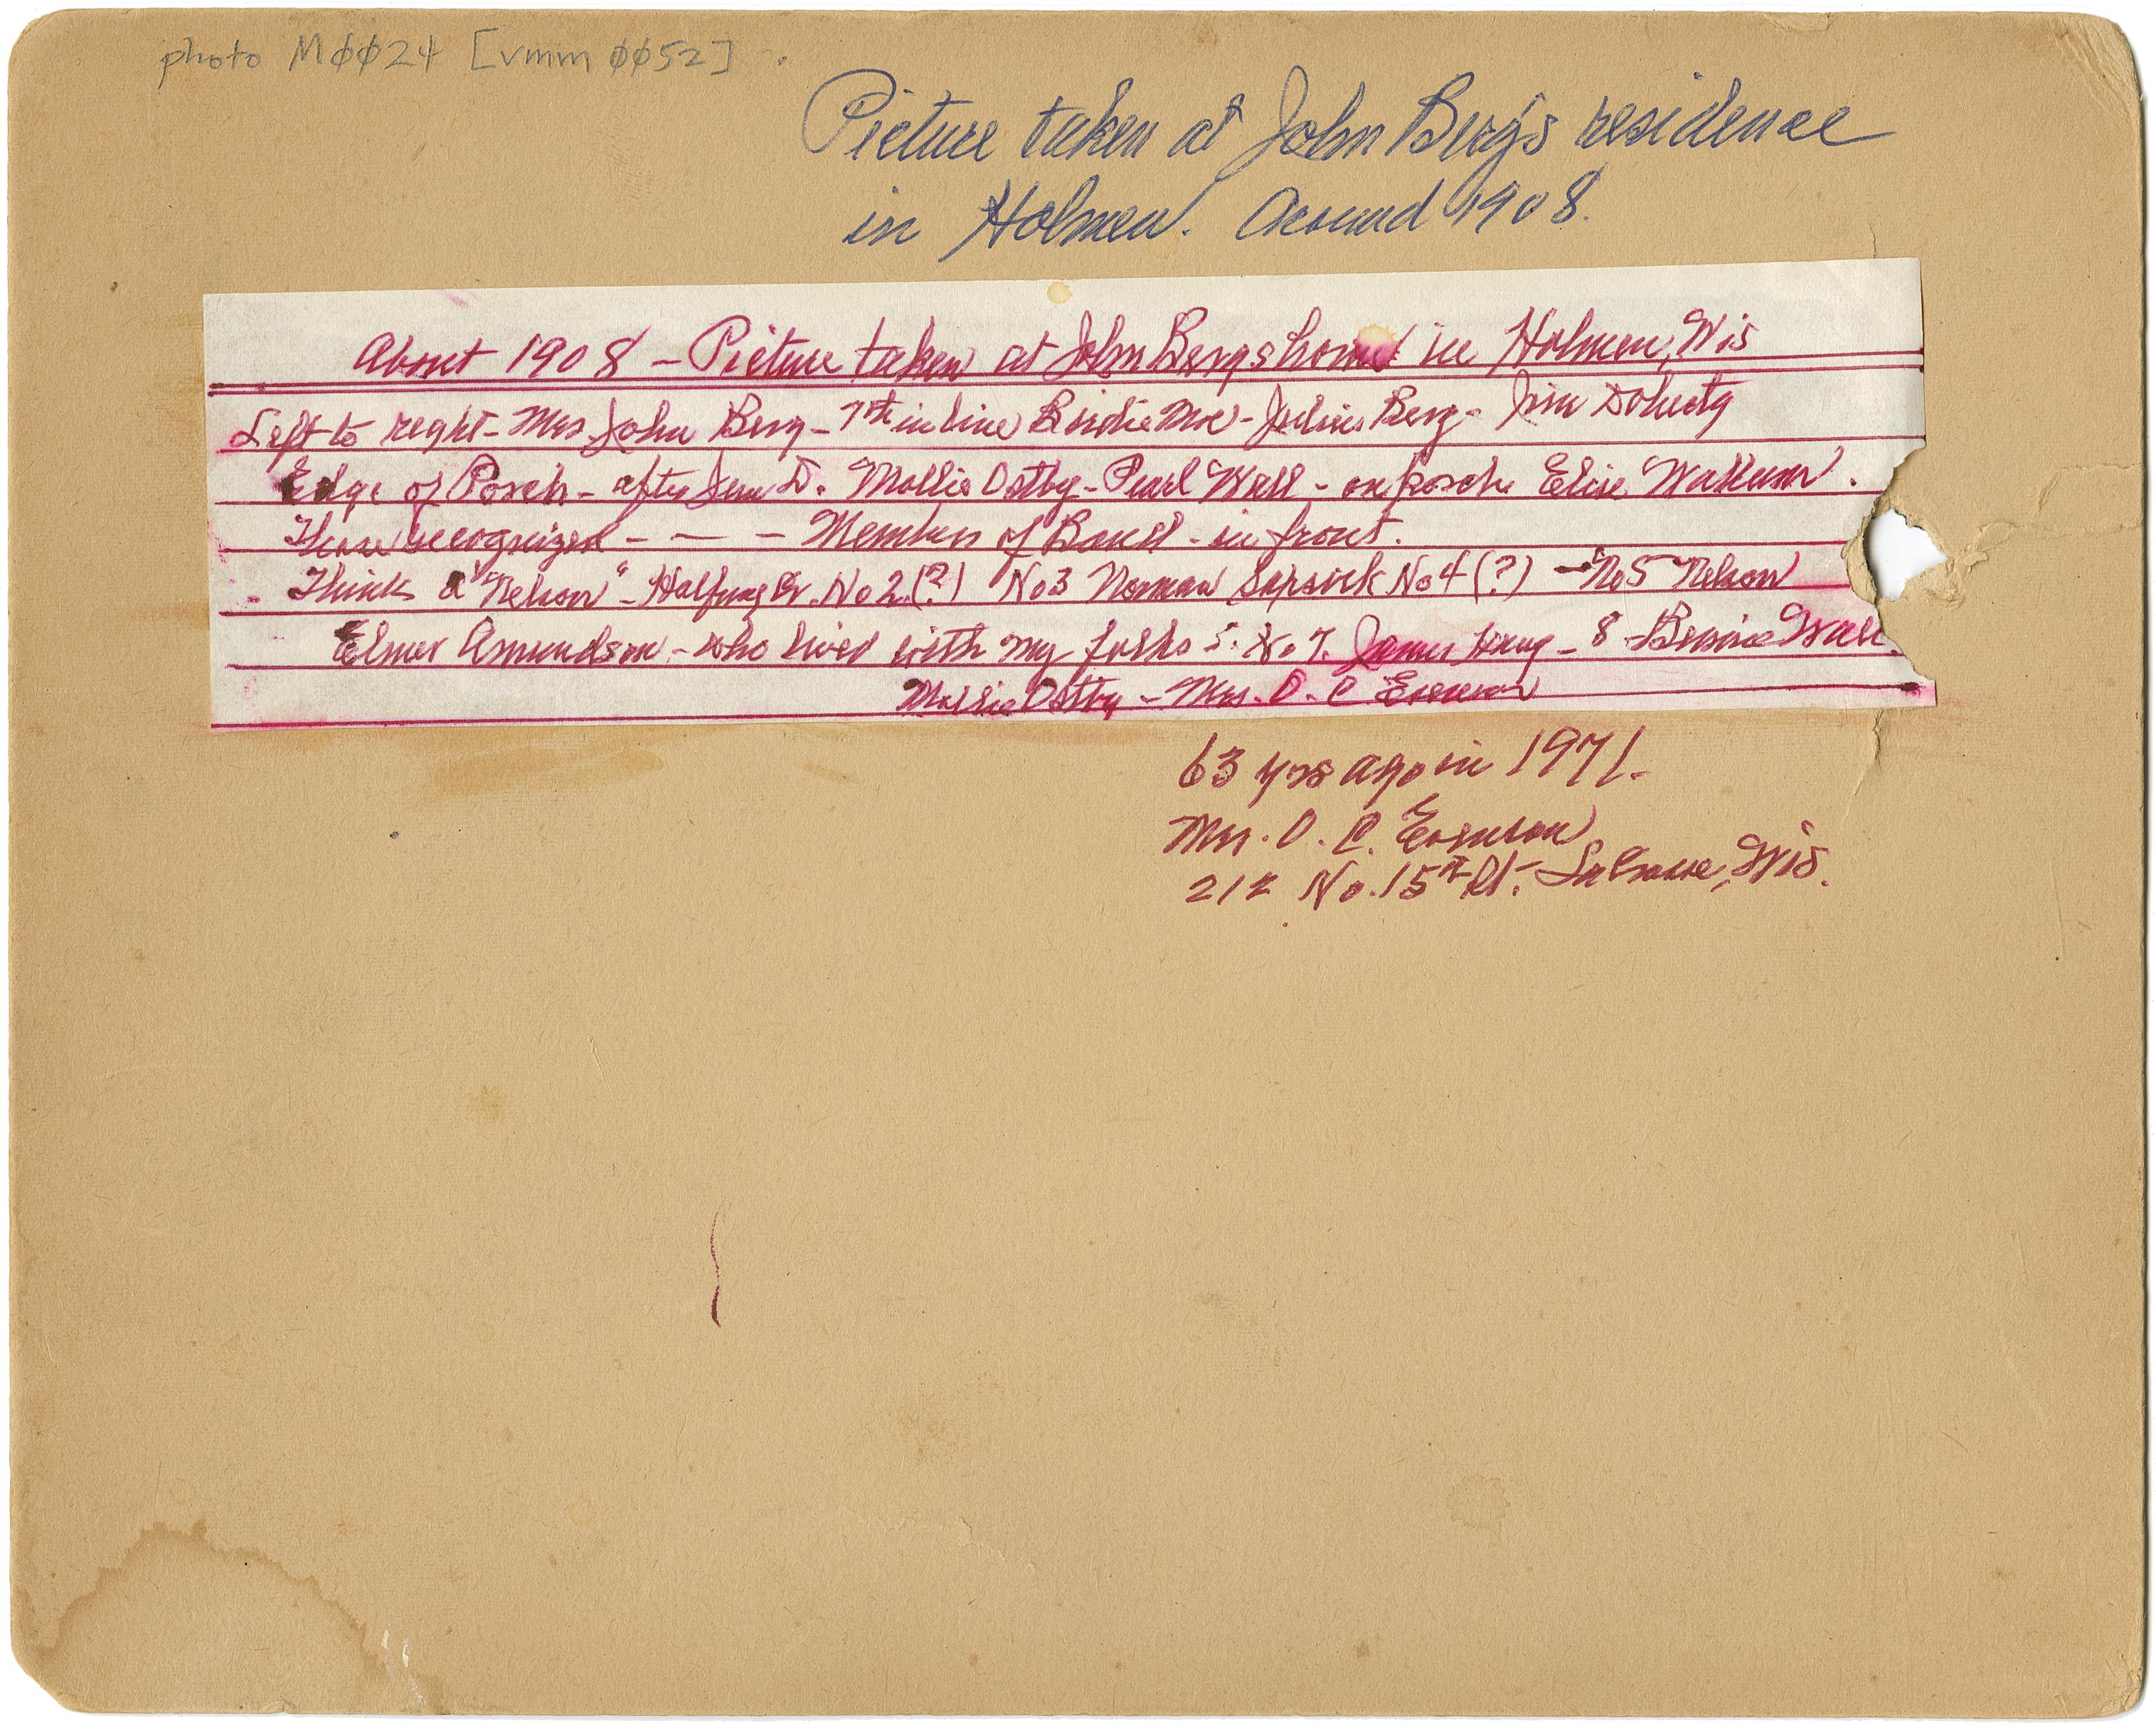 photo MØØ24 [vmm ØØ52]
Picture taken at John Berg's residence
in Holmen. Around 1908.
About 1908 - Picture taken at John Bergs home in Holmen, Wis
Left to right - Mrs John Berg - 7th in line Birdie Moe - Julius Berg - Jim Doherty
Edge of Porch - after Jim D. Mollie Ostby - Pearl Wall - on porch Elise Wallum.
Those recognized - - - Members of Band - in front.
Think a "Nelson" - Halfway Cr. No 2 (?) No 3 Norman No 4 (?) - No 5 Nelson
Elmer Amundson - who lived with my folks 5. No 7. James Haug - 8 Bennie Wall.
Mollie Ostby - Mrs. O. C. Evenson
63 yrs ago in 1971.
Mrs. O. C. Evenson
212 No. 15th St. La Crosse, Wis.